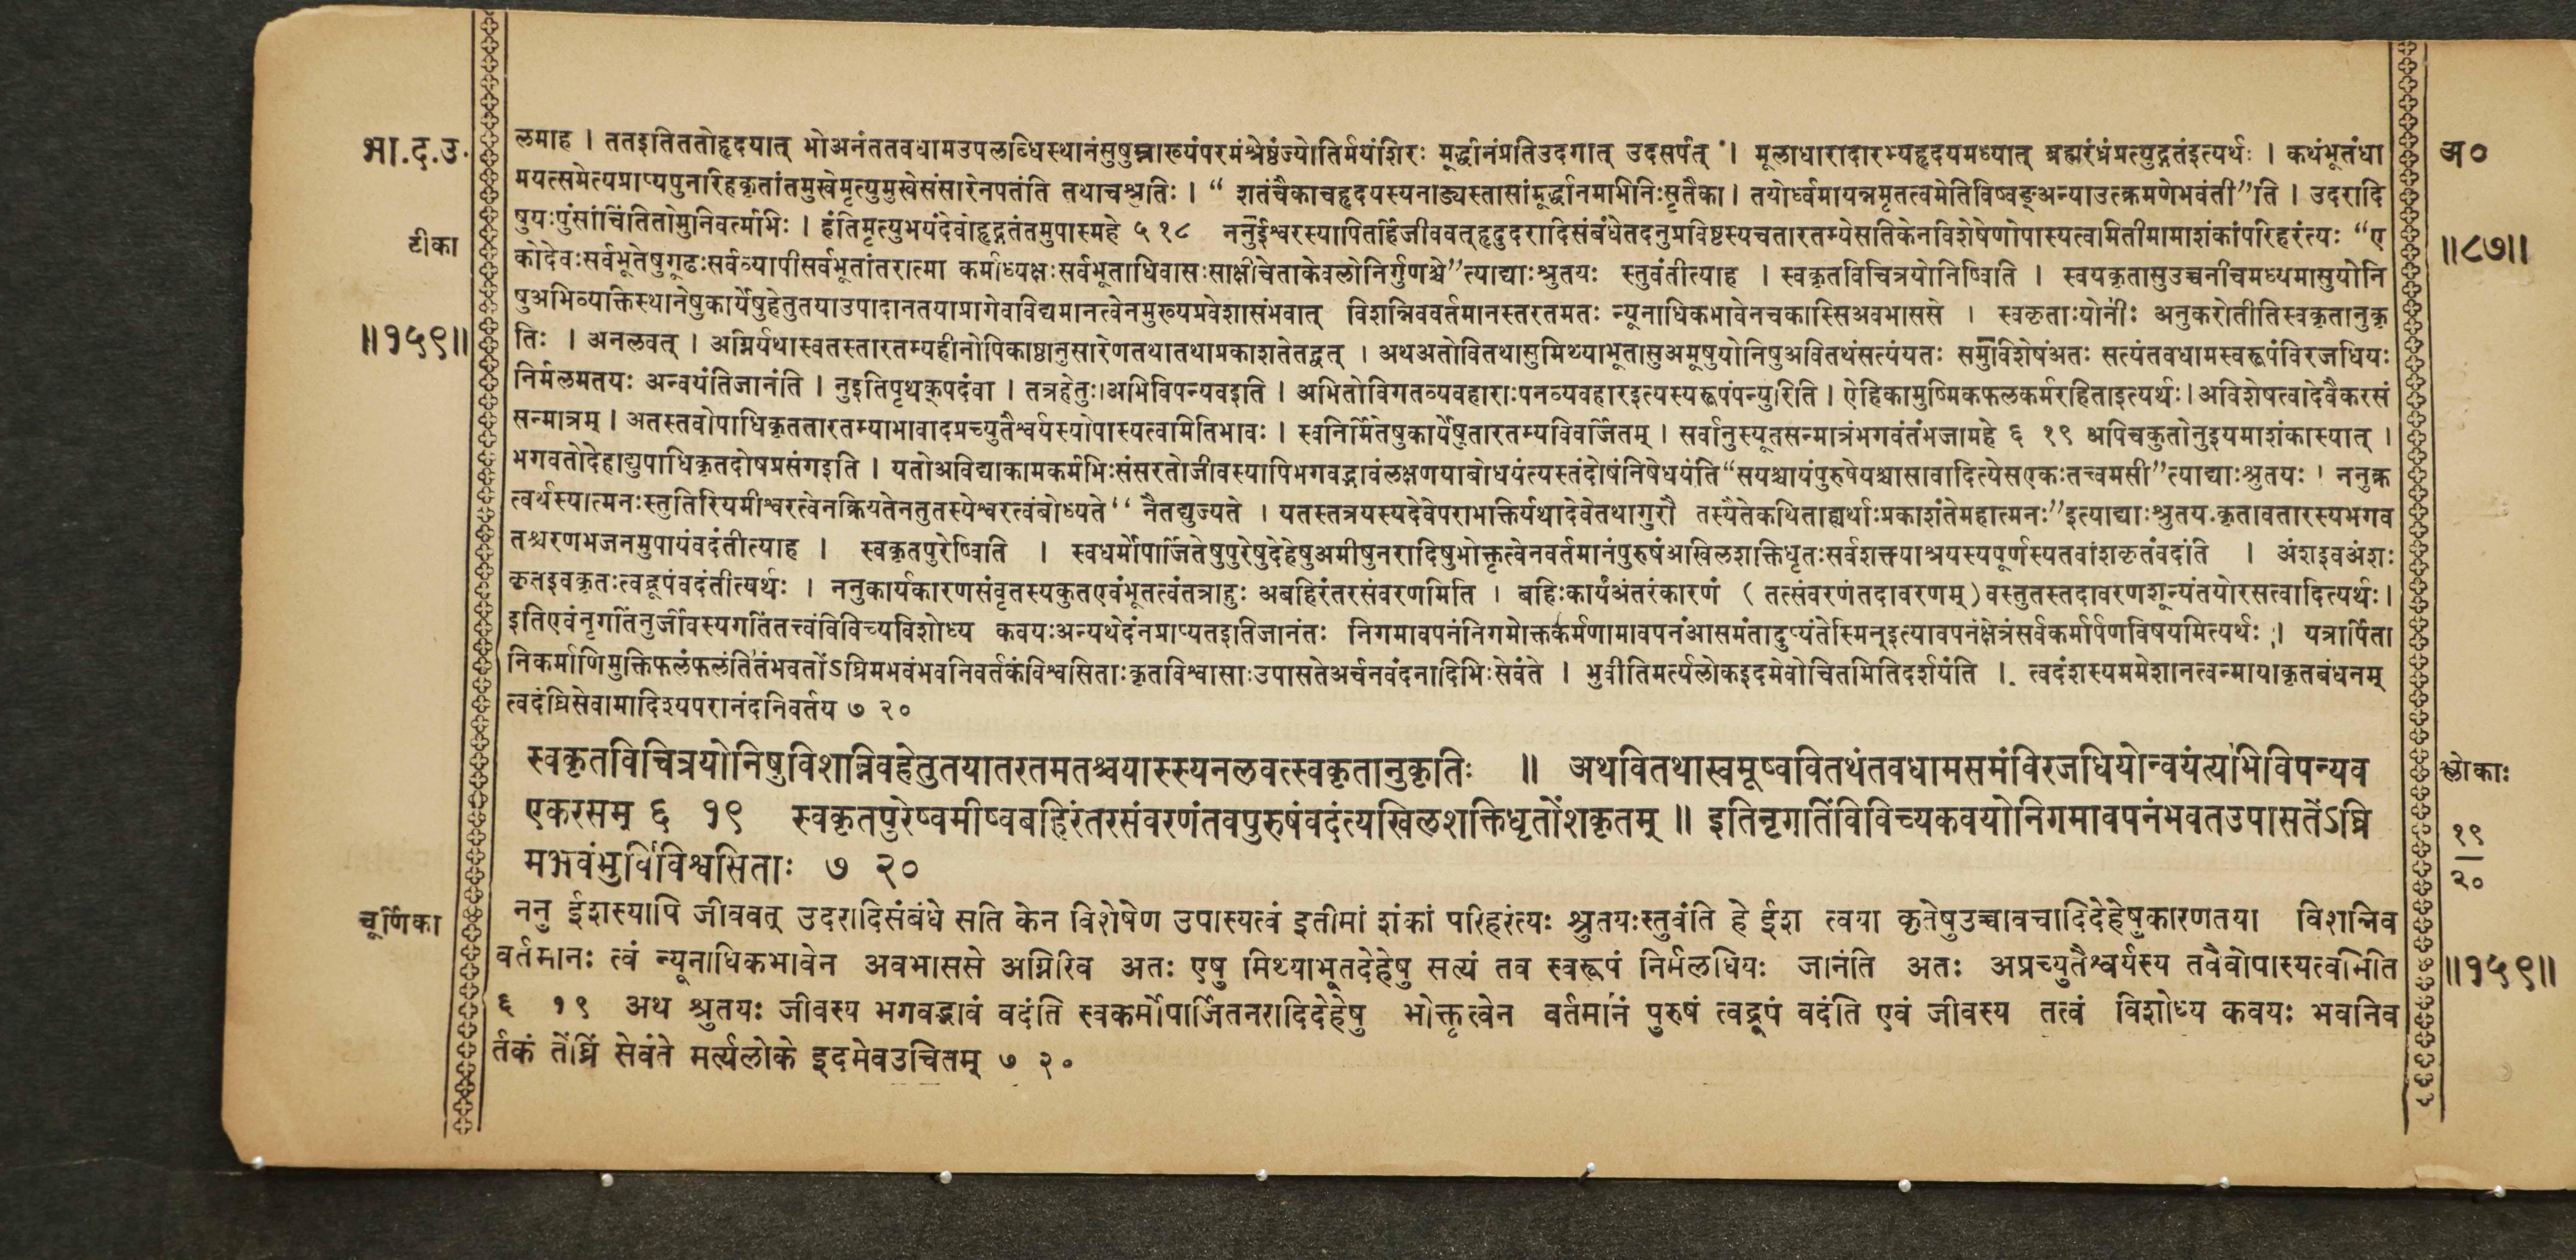 भा.द.उ.
अ०
लमाह । ततइतिततोहृदयात् भोअनंततवधामउपलब्धिस्थानंसुषुम्नाख्यंपरमंश्रेष्ठंज्योतिर्मयंशिरः मूर्द्धानंप्रतिउदगात् उदसर्पत् । मूलाधारादारभ्यहृदयमध्यात् ब्रह्मरंध्रंप्रत्युद्गतंइत्यर्थः । कथंभूतंधा
मयत्समेत्यप्राप्यपुनरिहकृतांतमुखेमृत्युमुखेसंसारेनपतंति तथाचश्रुतिः । “ शतंचैकाचहृदयस्यनाड्यस्तासांमूर्द्धानमभिनिःसृतैका । तयोर्ध्वमायन्नमृतत्वमेतिविष्वङ्अन्याउत्क्रमणेभवंती”ति । उदरादि
षुयःपुंसांचिंतितोमुनिवर्त्मभिः । हंतिमृत्युभयंदेवोहृद्गतंतमुपास्महे ५ १८ ननुईश्वरस्यापितर्हिजीववत्हृदुदरादिसंबंधेतदनुप्रविष्टस्यचतारतम्येसतिकेनविशेषेणोपास्यत्वमितीमामाशंकांपरिहरंत्यः “ए
टीका
॥८७॥
कोदेवःसर्वभूतेषुगूढःसर्वव्यापीसर्वभूतांतरात्मा कर्माध्यक्षःसर्वभूताधिवासःसाक्षीचेताकेवलोनिर्गुणश्चे”त्याद्याःश्रुतयः स्तुवंतीत्याह । स्वकृतविचित्रयोनिष्विति । स्वयकृतासुउच्चनीचमध्यमासुयोनि
षुअभिव्यक्तिस्थानेषुकार्येषुहेतुतयाउपादानतयाप्रागेवविद्यमानत्वेनमुख्यप्रवेशासंभवात् विशन्निववर्तमानस्तरतमतः न्यूनाधिकभावेनचकास्सिअवभाससे । स्वकृताःयोनीः अनुकरोतीतिस्वकृतानुकृ
॥१५९॥
तिः । अनलवत् । अग्निर्यथास्वतस्तारतम्यहीनोपिकाष्ठानुसारेणतथातथाप्रकाशतेतद्वत् । अथअतोवितथासुमिथ्याभूतासुअमूषुयोनिषुअवितथंसत्यंयतः समंविशेषंअतः सत्यंतवधामस्वरूपंविरजधियः
निर्मलमतयः अन्वयंतिजानंति । नुइतिपृथक्पदंवा । तत्रहेतुः।अभिविपन्यवइति । अभितोविगतव्यवहाराःपनव्यवहारइत्यस्यरूपंपन्युरिति । ऐहिकामुष्मिकफलकर्मरहिताइत्यर्थः।अविशेषत्वादेवैकरसं
सन्मात्रम् । अतस्तवोपाधिकृततारतम्याभावादप्रच्युतैश्वर्यस्योपास्यत्वमितिभावः । स्वनिर्मितेषुकार्येषुतारतम्यविवर्जितम् । सर्वानुस्यूतसन्मात्रंभगवंतंभजामहे ६ १९ अपिचकुतोनुइयमाशंकास्यात् ।
भगवतोदेहाद्युपाधिकृतदोषप्रसंगइति । यतोअविद्याकामकर्मभिःसंसरतोजीवस्यापिभगवद्भावंलक्षणयाबोधयंत्यस्तंदोषंनिषेधयंति“सयश्चायंपुरुषेयश्चासावादित्येसएकःतत्त्वमसी”त्याद्याःश्रुतयः । ननुक्र
त्वर्थस्यात्मनःस्तुतिरियमीश्वरत्वेनक्रियतेनतुतस्येश्वरत्वंबोध्यते“ नैतद्युज्यते । यतस्तत्रयस्यदेवेपराभक्तिर्यथादेवेतथागुरौ तस्यैतेकथिताह्यर्थाःप्रकाशंतेमहात्मनः”इत्याद्याःश्रुतय.कृतावतारस्यभगव
तश्चरणभजनमुपायंवदंतीत्याह । स्वकृतपुरेष्विति । स्वधर्मोपार्जितेषुपुरेषुदेहेषुअमीषुनरादिषुभोक्तृत्वेनवर्तमानंपुरुषंअखिलशक्तिधृतःसर्वशक्त्याश्रयस्यपूर्णस्यतवांशकृतंवदंति । अंशइवअंशः
कृतइवकृतःत्वद्रूपंवदंतीत्यर्थः । ननुकार्यकारणसंवृतस्यकुतएवंभूतत्वंतत्राहुः अबहिरंतरसंवरणमिति । बहिःकार्यंअंतरंकारणं ( तत्संवरणंतदावरणम्)वस्तुतस्तदावरणशून्यंतयोरसत्वादित्यर्थः।
इतिएवंनृगतिंनुर्जीवस्यगतिंतत्त्वंविविच्यविशोध्य कवयःअन्यथेदंनप्राप्यतइतिजानंतः निगमावपनंनिगमोक्तकर्मणामावपनंआसमंतादुप्यंतेस्मिन्इत्यावपनंक्षेत्रंसर्वकर्मार्पणविषयमित्यर्थः । यत्रार्पिता
निकर्माणिमुक्तिफलंफलंतितंभवतोंऽघ्रिमभवंभवनिवर्तकंविश्वसिताःकृतविश्वासाःउपासतेअर्चनवंदनादिभिःसेवंते । भुवीतिमर्त्यलोकइदमेवोचितमितिदर्शयंति । त्वदंशस्यममेशानत्वन्मायाकृतबंधनम्
त्वदंघ्रिसेवामादिश्यपरानंदनिवर्तय ७ २०
स्वकृतविचित्रयोनिषुविशन्निवहेतुतयातरतमतश्चयास्स्यनलवत्स्वकृतानुकृतिः ॥ अथवितथास्वमूष्ववितथंतवधामसमंविरजधियोन्वयंत्यभिविपन्यव
श्लोकाः
एकरसम् ६ १९ स्वकृतपुरेष्वमीष्वबहिरंतरसंवरणंतवपुरुषंवदंत्यखिलशक्तिधृतोंशकृतम् ॥ इतिनृगतिंविविच्यकवयोनिगमावपनंभवतउपासतेंऽघ्रि
१९
मभवंभुविविश्वसिताः ७ २०
२०
चूर्णिका
ननु ईशस्यापि जीववत् उदरादिसंबंधे सति केन विशेषेण उपास्यत्वं इतीमां शंकां परिहरंत्यः श्रुतयःस्तुवंति हे ईश त्वया कृतेषुउच्चावचादिदेहेषुकारणतया विशन्निव
वर्तमानः त्वं न्यूनाधिकभावेन अवभाससे अग्निरिव अतः एषु मिथ्याभूतदेहेषु सत्यं तव स्वरूपं निर्मलधियः जानंति अतः अप्रच्युतैश्वर्यस्य तवैवोपास्यत्वमिति
॥१५९॥
६ १९ अथ श्रुतयः जीवस्य भगवद्भावं वदंति स्वकर्मोपार्जितनरादिदेहेषु भोक्तृत्वेन वर्तमानं पुरुषं त्वद्रूपं वदंति एवं जीवस्य तत्वं विशोध्य कवयः भवनिव
र्तकं तेंघ्रिं सेवंते मर्त्यलोके इदमेवउचितम् ७ २०